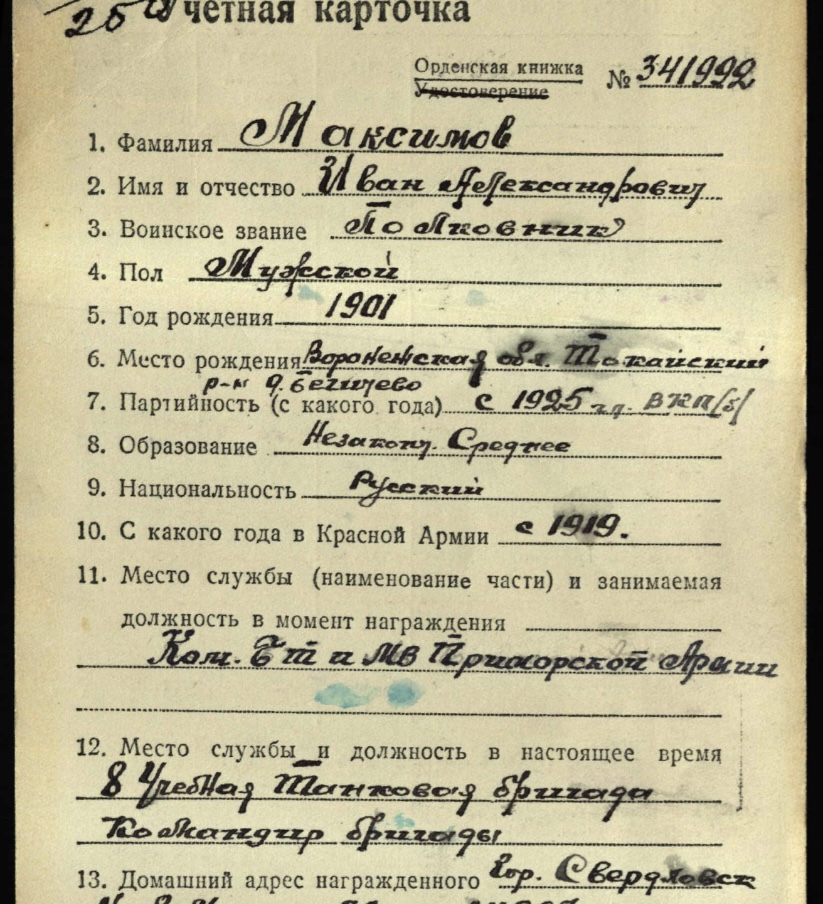 Учётная карточка
25
Орденская книжка
Удостоверение
№ 341992
1. Фамилия Максимов
2. Имя и отчество Иван Александрович
3. Воинское звание Полковник
4. Пол Мужской
5. Год рождения 1901
6. Место рождения Воронежская обл. Токайский
р-н д. Бегичево
7. Партийность (с какого года) с 1925 г. ВКП(б)
8. Образование Незаконч. Среднее
9. Национальность Русский
10. С какого года в Красной Армии с 1919.
11. Место службы (наименование части) и занимаемая
должность в момент награждения
Ком. БТ и МВ Приморской Армии
12. Место службы и должность в настоящее время
8 Учебная Танковая бригада
Командир бригады
13. Домашний адрес награжденного гор. Свердловск